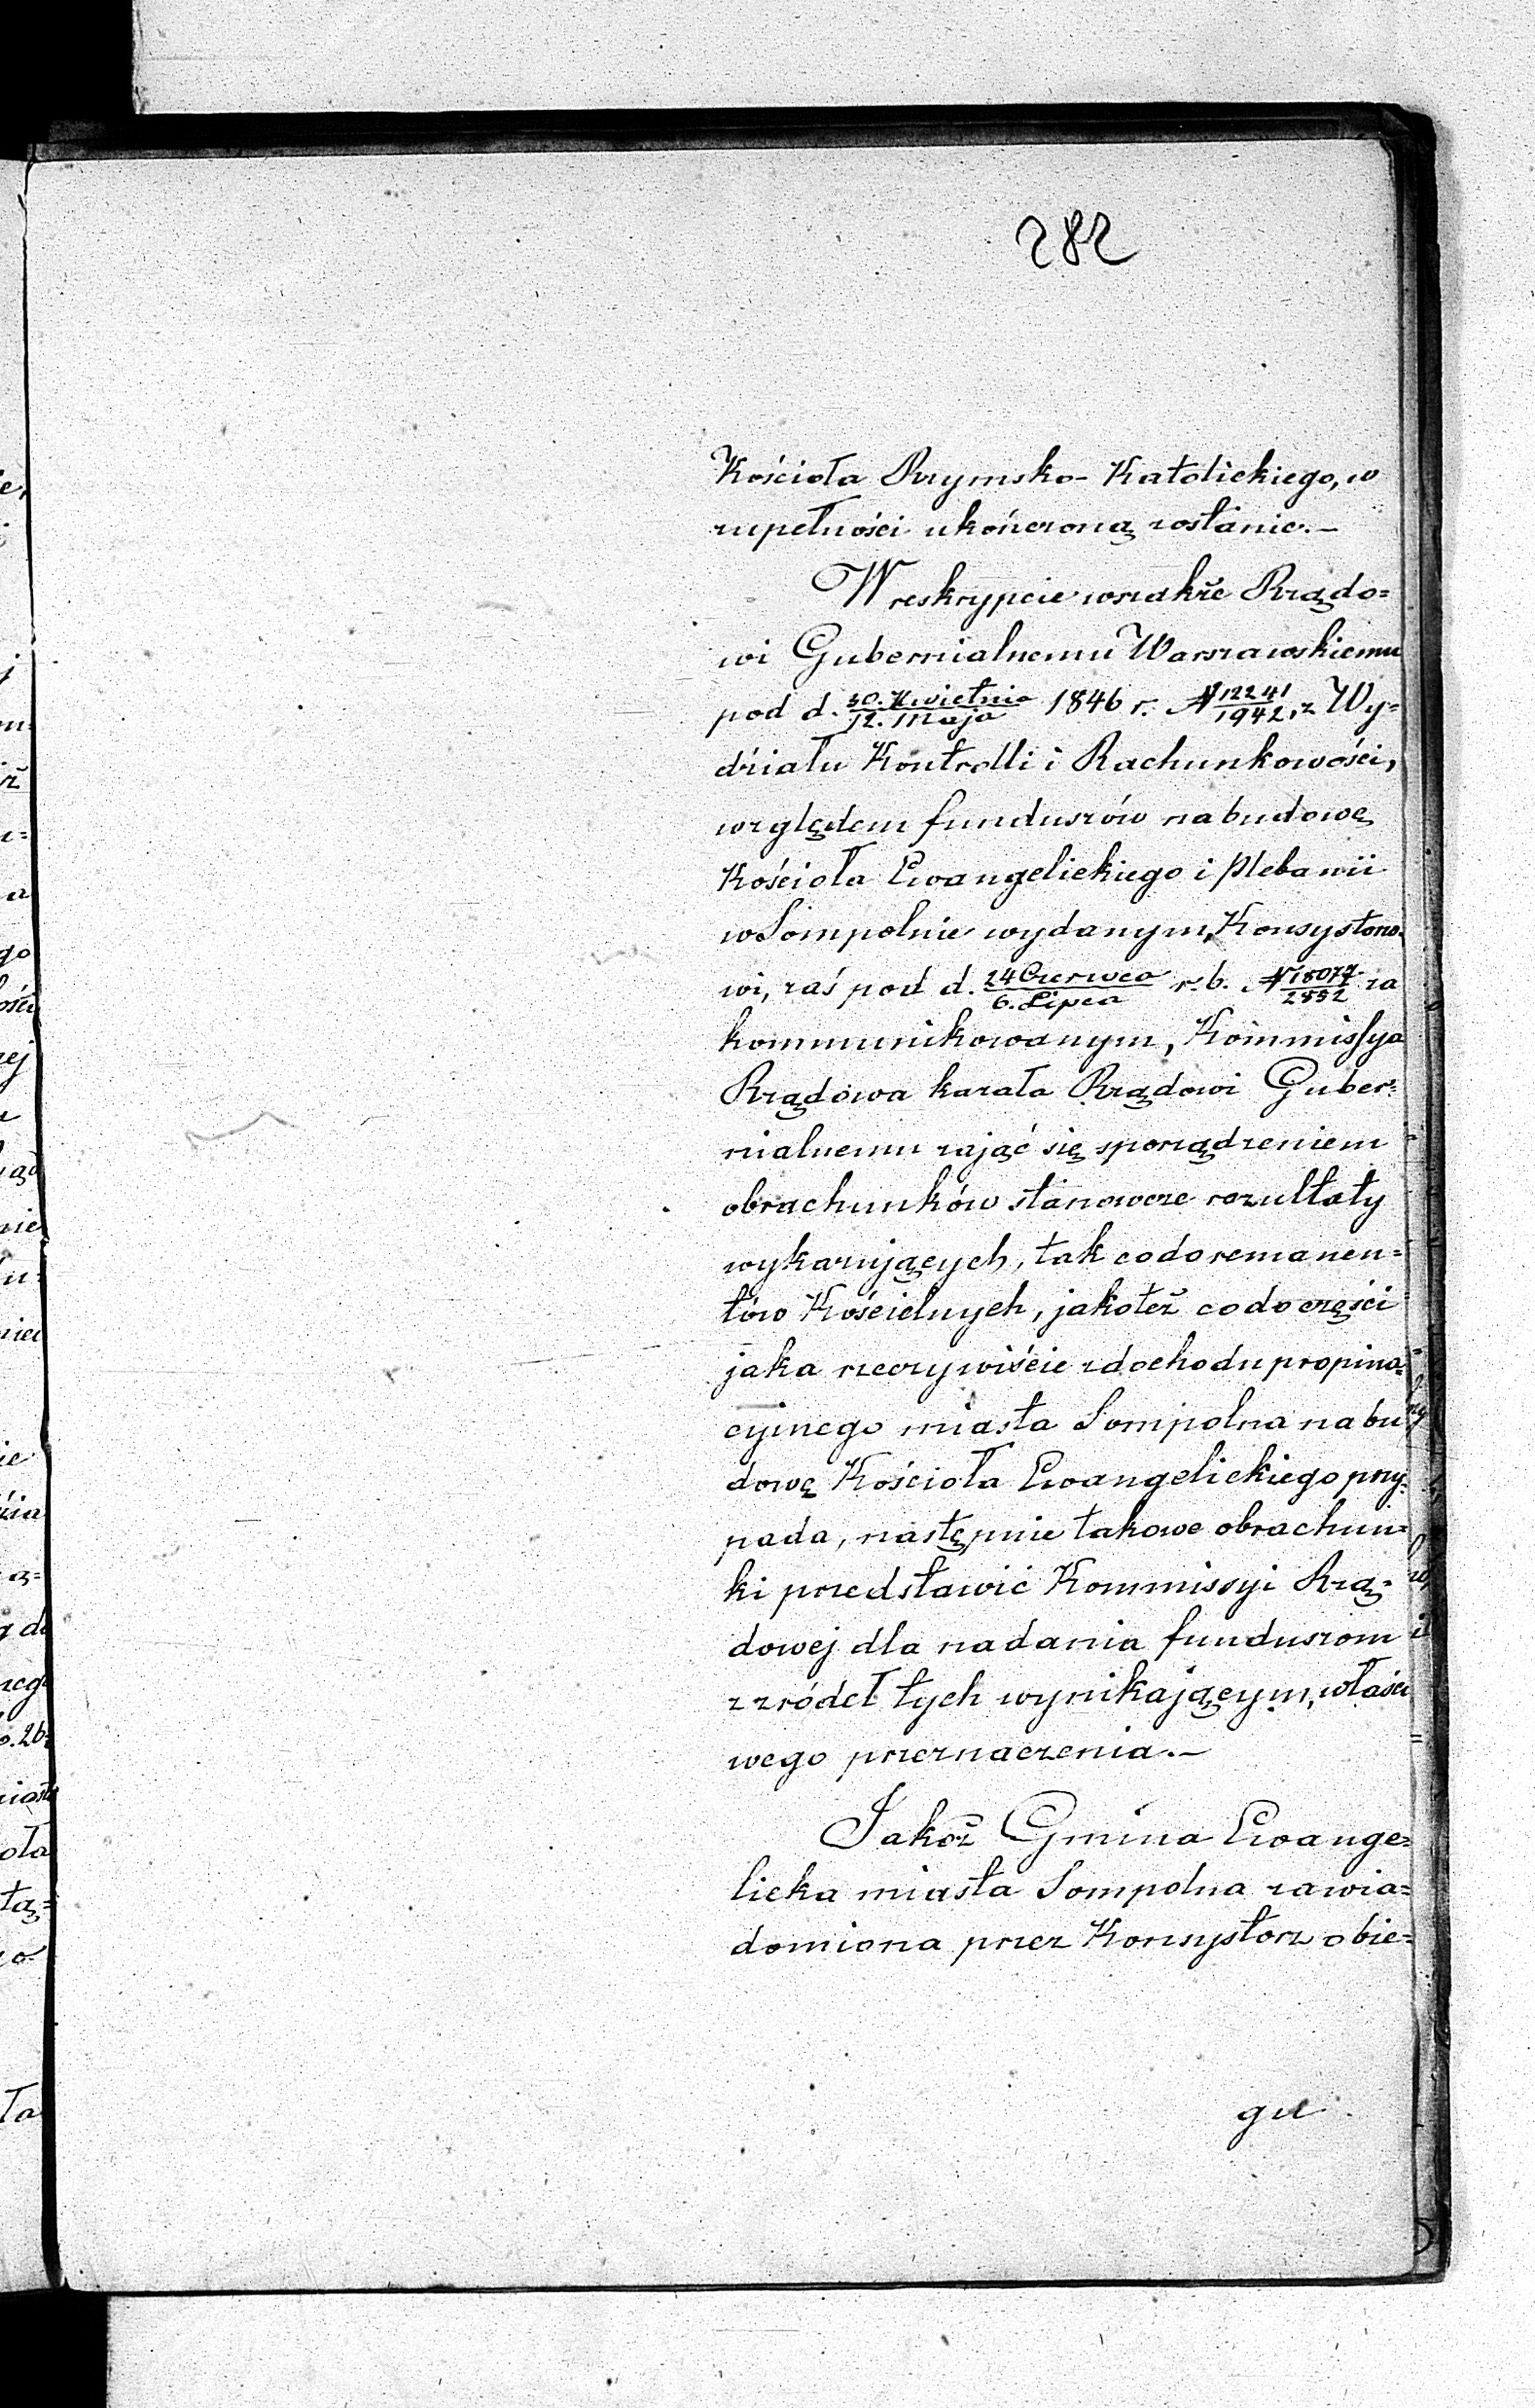 282
Kościoła Rzymsko-Katolickiego, w
zupełności ukończoną zostanie.—
W reskrypcie wszakże Rządo=
wi Gubernialnemu Warszawskiemu
pod d. 30. Kwietnia/12. Maja 1846 r. N 12241/1942, z Wy=
działu Kontrolli i Rachunkowości,
względem funduszów na budowę
Kościoła Ewangelickiego i Plebanii
w Sompolnie wydanym, Konsystorzo=
wi, zaś pod d. 24 Czerwca/6. Lipca r. b. N 18077/2852 za
kommunikowanym, Kommissya
Rządowa kazała Rządowi Guber=
nialnemu zająć się sporządzeniem
obrachunków stanowcze rezultaty
wykazujących, tak co do remanen=
tów Kościelnych, jakoteż co do części
jaka rzeczywiście z dochodu propina=
cyjnego miasta Sompolna na bu
dowę Kościoła Ewangelickiego przy=
pada, następnie takowe obrachun=
ki przedstawić Kommissyi Rzą=
dowej dla nadania funduszom
z zródeł tych wynikającym, właści
wego przeznaczenia.—
Jakoż Gmina Ewange=
licka miasta Sompolna zawia=
domiona przez Konsystorz o bie=
gu